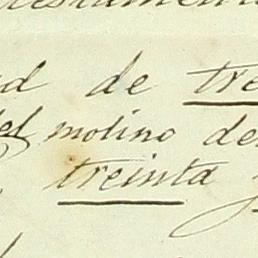 d de tre
del molino de
treinta y